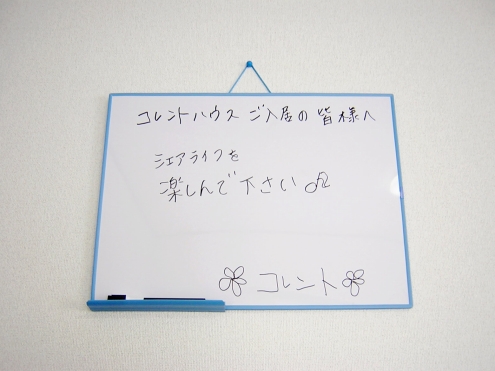 コレントハウス ご入居の皆様へ
シェアライフを
楽しんで下さい♫
コレント